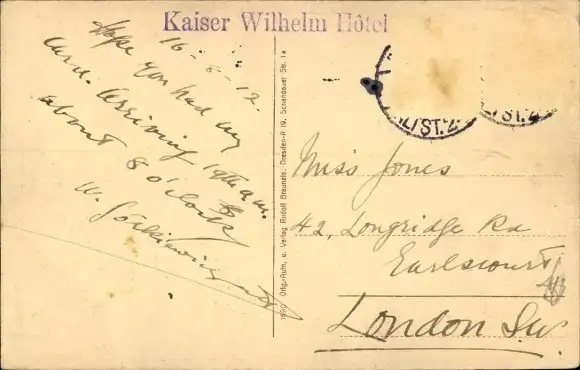 Kaiser Wilhelm Hôtel
16-8-12.
Hope you had my
card. Arriving 19th a.m.
about 8 o'clock
W.
1590 Orig.-Aufn. u. Verlag Rudolf Brauneis, Dresden-A 19, Schandauer Str. 14
Miss Jones
42, Longridge Rd
Earlscourt
London S.W.
/ST.2
/ST.2